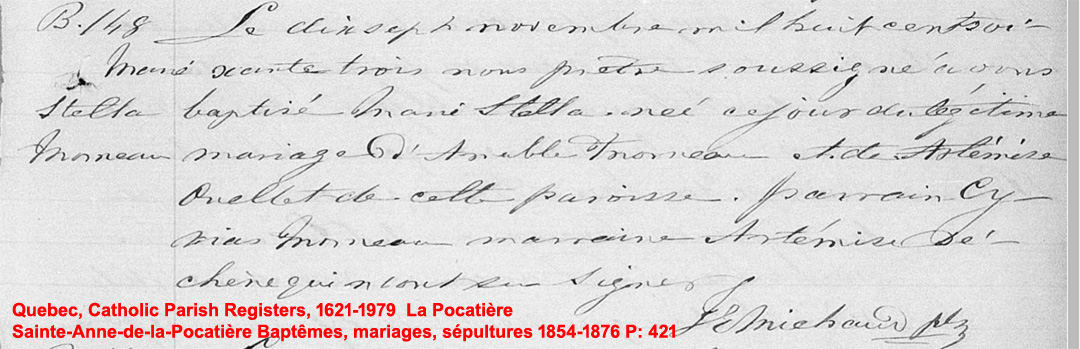 B. 148 Le dix sept novembre mil huit cent soi-
Marie xante trois nous prêtre soussigné avons
Stella baptisé Marie Stella née ce jour du légitime
Morneau mariage d'Amable Morneau et de Artémise
Ouellet de cette paroisse. parrain Cy-
rias Morneau marraine Artémise De'-
chène qui n'ont su signer
Quebec, Catholic Parish Registers, 1621-1979 La Pocatière
Sainte-Anne-de-la-Pocatière Baptêmes, mariages, sépultures 1854-1876 P: 421
Michaud ptr